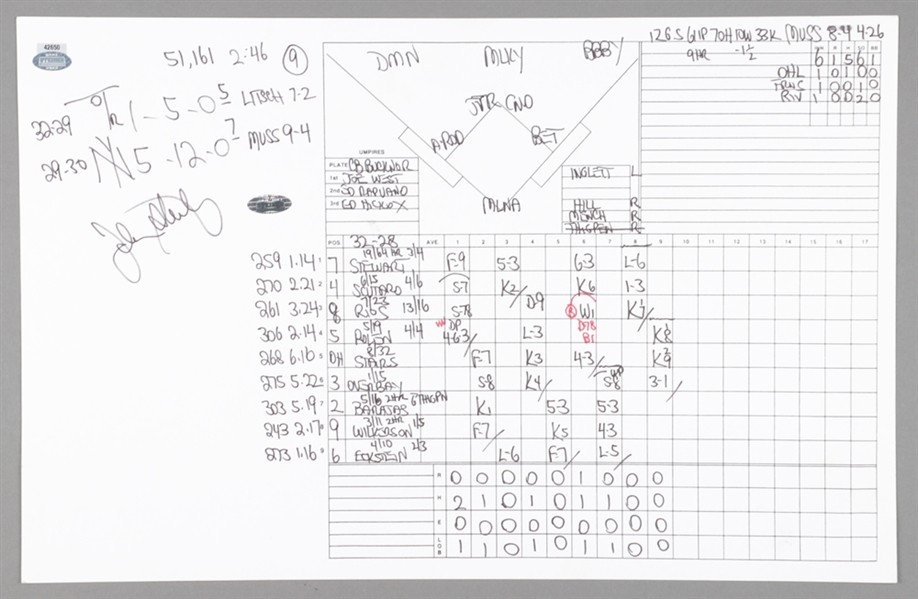 42650
51,161 2:46 9
32-29 1-5-0 5 LITSCH 7-2
29-30 NY 5-12-0 7 MUSS 9-4
DMN MLKY BBBY
JTR CNO
A-ROD BET
MLNA
UMPIRES
PLATE CB BUCKNOR
1st JOE WEST
2nd ED RAPUANO
3rd ED HICKOX
INGLETT L
HILL R
MENCH R
THIGPEN R
12GS 61IP 70H 10W 33K MUSS 8-4 4.26
9HR -1½
6 1 5 6 1
OHL 1 0 1 0 0
FRNS 1 0 0 1 0
RIV 1 0 0 2 0
32-28
POS AVE 1 2 3 4 5 6 7 8 9 10 11 12 13 14 15 16 17
19/64 HR 3/4
259 1.14 7 STEWART F-9 5-3 6-3 L-6
6/15 4/6
270 2.21 4 SCUTARO S-7 K2 K6 1-3
7/23 13/16
261 3.24 8 RIOS S-78 D-9 W1 K7
5/19 4/4
306 2.14 5 ROLEN DP 463 L-3 D-78 BI K8
8/32
268 6.10 DH STAIRS F-7 K3 4-3 K9
1/15
275 5.22 3 OVERBAY S-8 K4 S-8 3-1
5/16 2HR
303 5.19 2 BARAJAS K1 5-3 5-3
3/11 2HR 1/5
243 2.17 9 WILKERSON F-7 K5 4-3
4/10 2/3
273 1.16 6 ECKSTEIN L-6 F-7 L-5
R 0 0 0 0 0 1 0 0 0
H 2 1 0 1 0 1 1 0 0
E 0 0 0 0 0 0 0 0 0
LOB 1 1 0 1 0 1 1 0 0